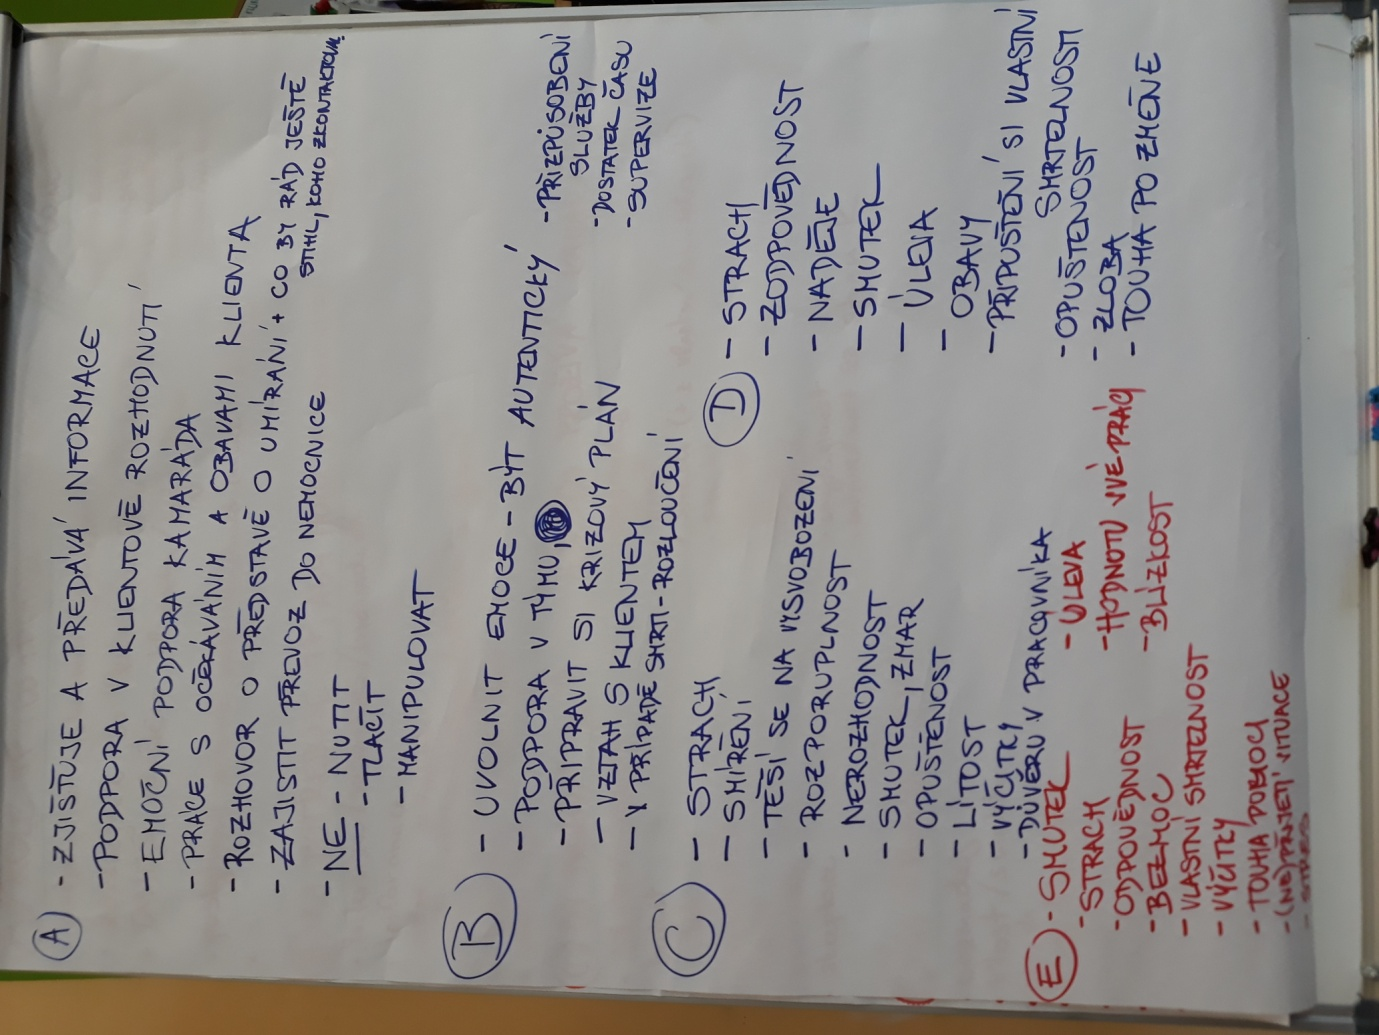 A - ZJIŠŤUJE A PŘEDÁVÁ INFORMACE
- PODPORA V KLIENTOVĚ ROZHODNUTÍ
- EMOČNÍ PODPORA KAMARÁDA
- PRÁCE S OČEKÁVÁNÍM A OBAVAMI KLIENTA
- ROZHOVOR O PŘEDSTAVĚ O UMÍRÁNÍ + CO BY RÁD JEŠTĚ
STIHL, KOHO ZKONTAKTOV.
- ZAJISTIT PŘEVOZ DO NEMOCNICE
- NE - NUTIT
- TLAČIT
- MANIPULOVAT
B - UVOLNIT EMOCE - BÝT AUTENTICKÝ
- PODPORA V TÝMU,
- PŘIPRAVIT SI KRIZOVÝ PLÁN
- VZTAH S KLIENTEM
- V PŘÍPADĚ SMRTI - ROZLOUČENÍ
- PŘIZPŮSOBENÍ
SLUŽBY
- DOSTATEK ČASU
- SUPERVIZE
C - STRACH
- SMÍŘENÍ
- TĚŠÍ SE NA VYSVOBOZENÍ
- ROZPORUPLNOST
- NEROZHODNOST
- SMUTEK, ZMAR
- OPUŠTĚNOST
- LÍTOST
- VÝČITKY
- DŮVĚRU V PRACOVNÍKA
D - STRACH
- ZODPOVĚDNOST
- NADĚJE
- SMUTEK
- ÚLEVA
- OBAVY
- PŘIPUŠTĚNÍ SI VLASTNÍ
SMRTELNOSTI
- OPUŠTĚNOST
- ZLOBA
- TOUHA PO ZMĚNE
E - SMUTEK
- STRACH
- ODPOVĚDNOST
- BEZMOC
- VLASTNÍ SMRTELNOST
- VÝČITKY
- TOUHA POMOCI
- (NE)PŘIJETÍ SITUACE
- STRES
- ÚLEVA
- HODNOTU VE SVÉ PRÁCI
- BLÍZKOST